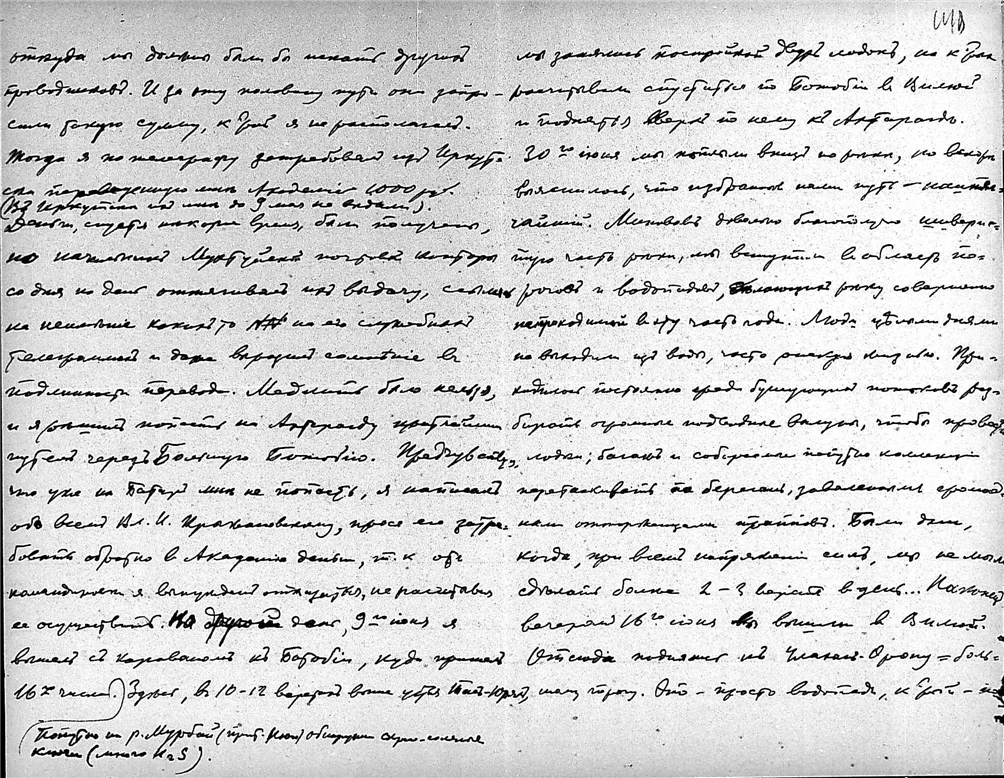 откуда мы должны были бы искать других
проводников. И за эту половину пути они запро-
сили такую сумму, к-рой я не располагал.
Тогда я по телеграфу затребовал из Иркутс-
ска переведенную мне Академіей 1000 руб.
(В Иркутске их мне до 9 мая не выдали).
Деньги, спустя некоторое время, были получены,
но начальник Мухтуйской почтовой конторы
со дня на день оттягивал их выдачу, ссылаясь
на неимѣніе каких то на его служебных
телеграммах и даже выразил сомнѣніе в
подлинности перевода. Медлить было нельзя,
и я рѣшил попасть на Ахтаранду кратчайшим
путем через Большую Ботобію. Предчувствуя,
что уже на Батыг мнѣ не попасть, я написал
обо всем Вл. И. Крыжановскому, прося его затре-
бовать обратно в Академію деньги, т. к. от
командировки я вынужден отказаться, не рассчитывая
ее осуществить. На другой день, 9го іюня я
вышел с караваном к Ботобіи, куда пришел
16го числа. Здѣсь, в 10-12 верстах выше устья
(Попутно на р. Мурбай (прит. Нюи) обнаружил серно-соленые
ключи (много H2S).
мы занялись постройкой двух лодок, на к-рых
рассчитывали спуститься по Ботобіи в Вилюй
и подняться вверх по нему к Ахтаранде.
30го іюня мы поплыли вниз по рѣкѣ, но вскоре
выяснилось, что избранный нами путь — наитяг-
чайшій. Миновав довольно благополучно шивери-
стую часть рѣки, мы вступили в область по-
рогов и водопадов, дѣлающих рѣку совершенно
непроходимой в эту часть года. Люди цѣлыми днями
не выходили из воды, часто рискуя жизнью. При-
ходилось постоянно среди бушующих потоков раз-
бирать огромные подводные валуны, чтобы провести
лодки; багаж и собранные попутно коллекции
перетаскивать по берегам, заваленным громад-
ными отторженцами траппов. Были дни,
когда, при всем напряжении сил, мы не могли
сдѣлать более 2-3 верст в день... Наконец
вечером 16го іюня мы вышли в Вилюй.
Отсюда поднялись к Улахан-Орону = боль-
шому порогу. Это — просто водопад, к-рый —